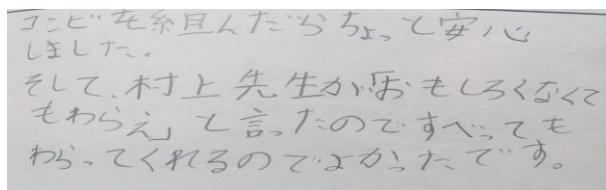 コンビを組んだらちょっと安心
しました。
そして、村上先生が「おもしろくなくて
もわらえ」と言ったのですべっても
わらってくれるのでよかったです。